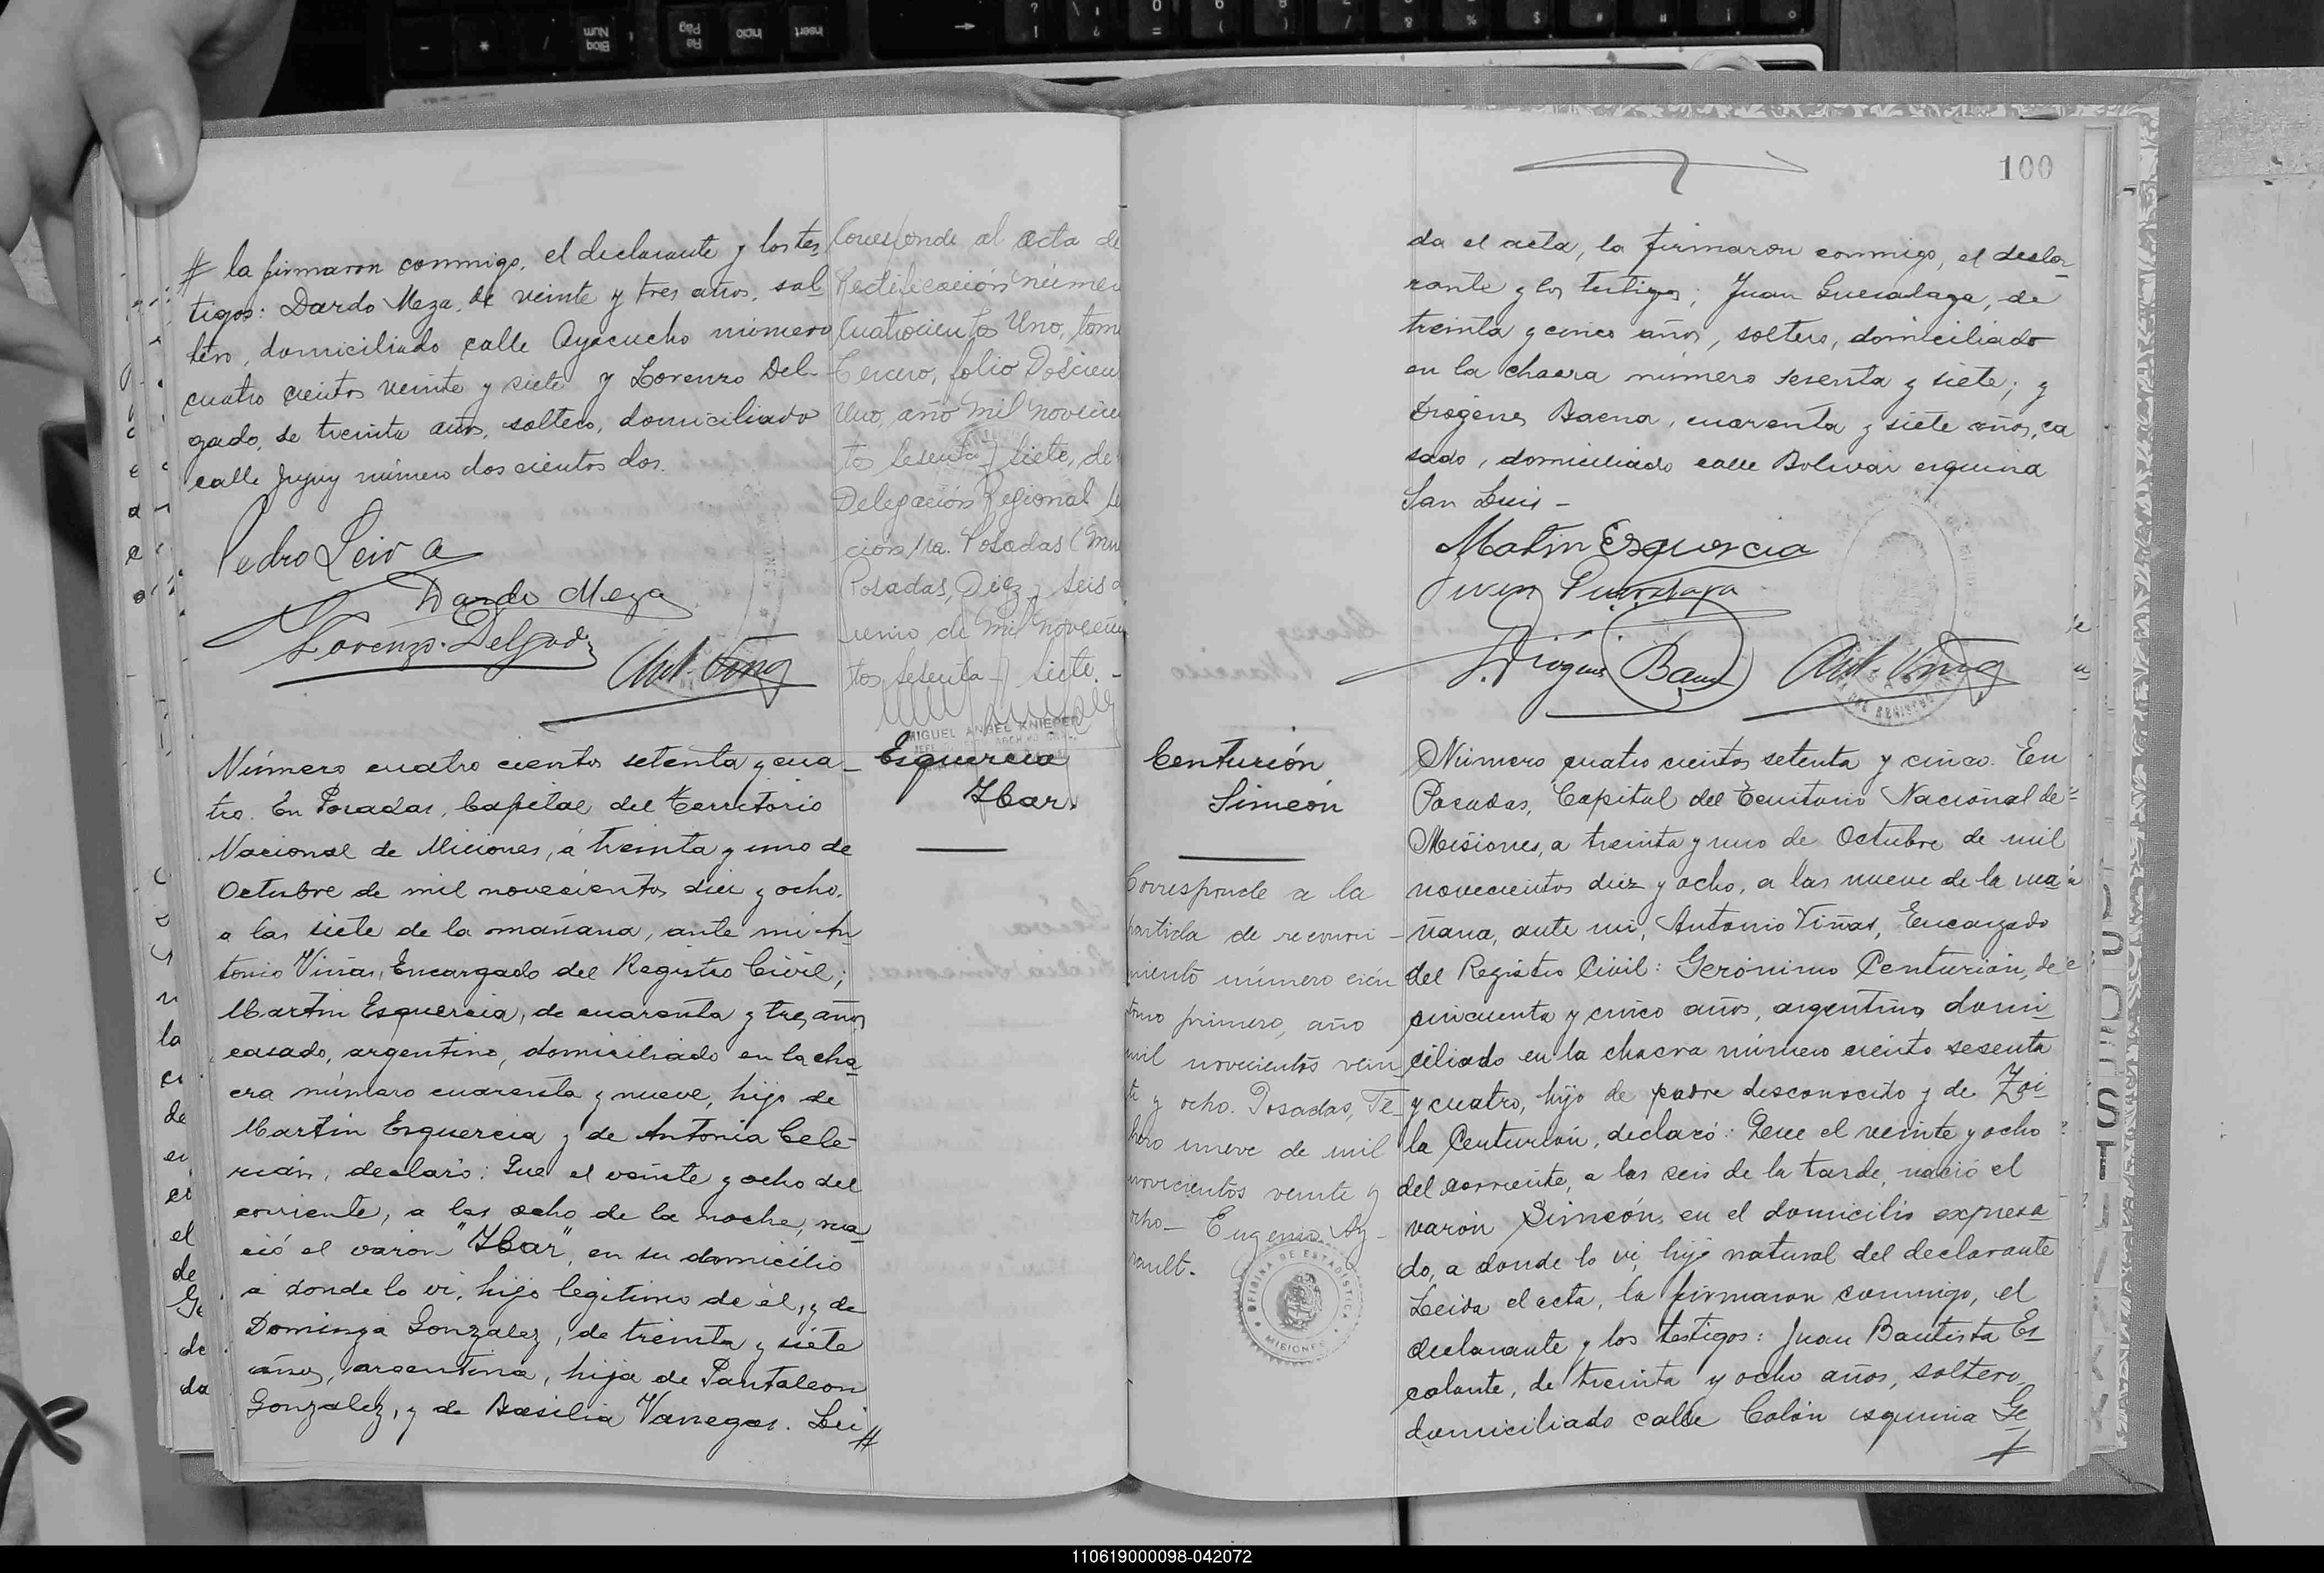 # la firmaron conmigo, el declarante y los tes
tigos: Dardo Meza, de veinte y tres años, sol
tero, domiciliado calle Ayacucho número
cuatro cientos veinte y siete y Lorenzo Del-
gado, de treinta años, soltero, domiciliado
calle Jujuy número dos cientos dos.
Pedro Leiva
Dardo Meza
Lorenzo Delgado
Corresponde al acta de
Rectificación númer
Cuatrocientos Uno, tom
Tercero, folio Doscien
Uno, año mil novecien
tos sesenta y siete, de
Delegación Regional Se
ción 1ra. Posadas (Mn
Posadas, Diez y seis d
Junio de mil novecien
tos sesenta y siete.-
MIGUEL ANGEL KNIEPER
Esquercia
Ybar.
Número cuatro cientos setenta y cua-
tro. En Posadas, Capital del Territorio
Nacional de Miciones, á treinta y uno de
Octubre de mil novecientos diez y ocho,
a las siete de la mañana, ante mi An
tonio Viñas, Encargado del Registro Civil;
Martin Esquercia, de cuarenta y tres años
casado, argentino, domiciliado en la cha
cra número cuarenta y nueve, hijo de
Martin Esquercia y de Antonia Cele-
rián, declaró: Que el veinte y ocho del
corriente, a las ocho de la noche, na
ció el varon "Ybar", en su domicilio
a donde lo vi, hijo legitimo de él, y de
Dominga Gonzalez, de treinta y siete
años, argentina, hija de Pantaleon
Gonzalez, y de Basilia Vanegas. Lei
#
100
da el acta, la firmaron conmigo, el decla-
rante y los testigos; Juan Guesalaga, de
treinta y cinco años, soltero, domiciliado
en la chacra número sesenta y siete; y
Diogenes Baena, cuarenta y siete años, ca
sado, domiciliado calle Bolivar esquina
San Luis -
Matin Esquercia
Diogenes Baena
Centurión
Simeón
Corresponde a la
partida de reconoci-
miento número cien
tomo primero, año
mil novecientos vein
te y ocho. Posadas, Fe-
brero nueve de mil
novecientos veinte y
ocho- Eugenio Ay-
rault.
OFICINA DE ESTADISTICA
MISIONES
Número cuatro cientos setenta y cinco. En
Posadas, Capital del Territorio Nacional de
Misiones, a treinta y uno de Octubre de mil
novecientos diez y ocho, a las nueve de la ma
ñana, ante mi, Antonio Viñas, Encargado
del Registro Civil: Gerónimo Centurión, de
cincuenta y cinco años, argentino domi
ciliado en la chacra número ciento sesenta
y cuatro, hijo de padre desconocido y de Zoi
la Centurión, declaró: Que el veinte y ocho
del corriente, a las seis de la tarde, nació el
varón Simeón, en el domicilio expresa
do, a donde lo vi, hijo natural del declarante
Leida el acta, la firmaron conmigo, el
declarante y los testigos: Juan Bautista Es
calante, de treinta y ocho años, soltero,
domiciliado calle Colón esquina Ge
110619000098-042072